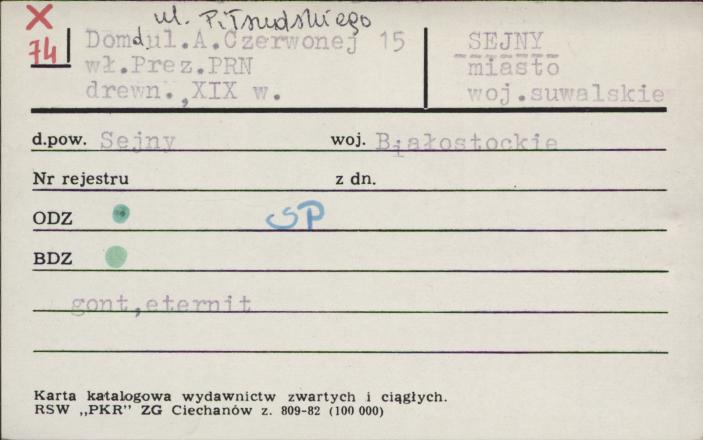 X ul. Piłsudskiego
74 Dom, ul.A.Czerwonej 15 SEJNY
wł.Prez.PRN miasto
drewn.,XIX w. woj.suwalskie
d.pow. Sejny woj. Białostockie
Nr rejestru z dn.
ODZ SP
BDZ
gont,eternit
Karta katalogowa wydawnictw zwartych i ciągłych.
RSW „PKR" ZG Ciechanów z. 809-82 (100 000)